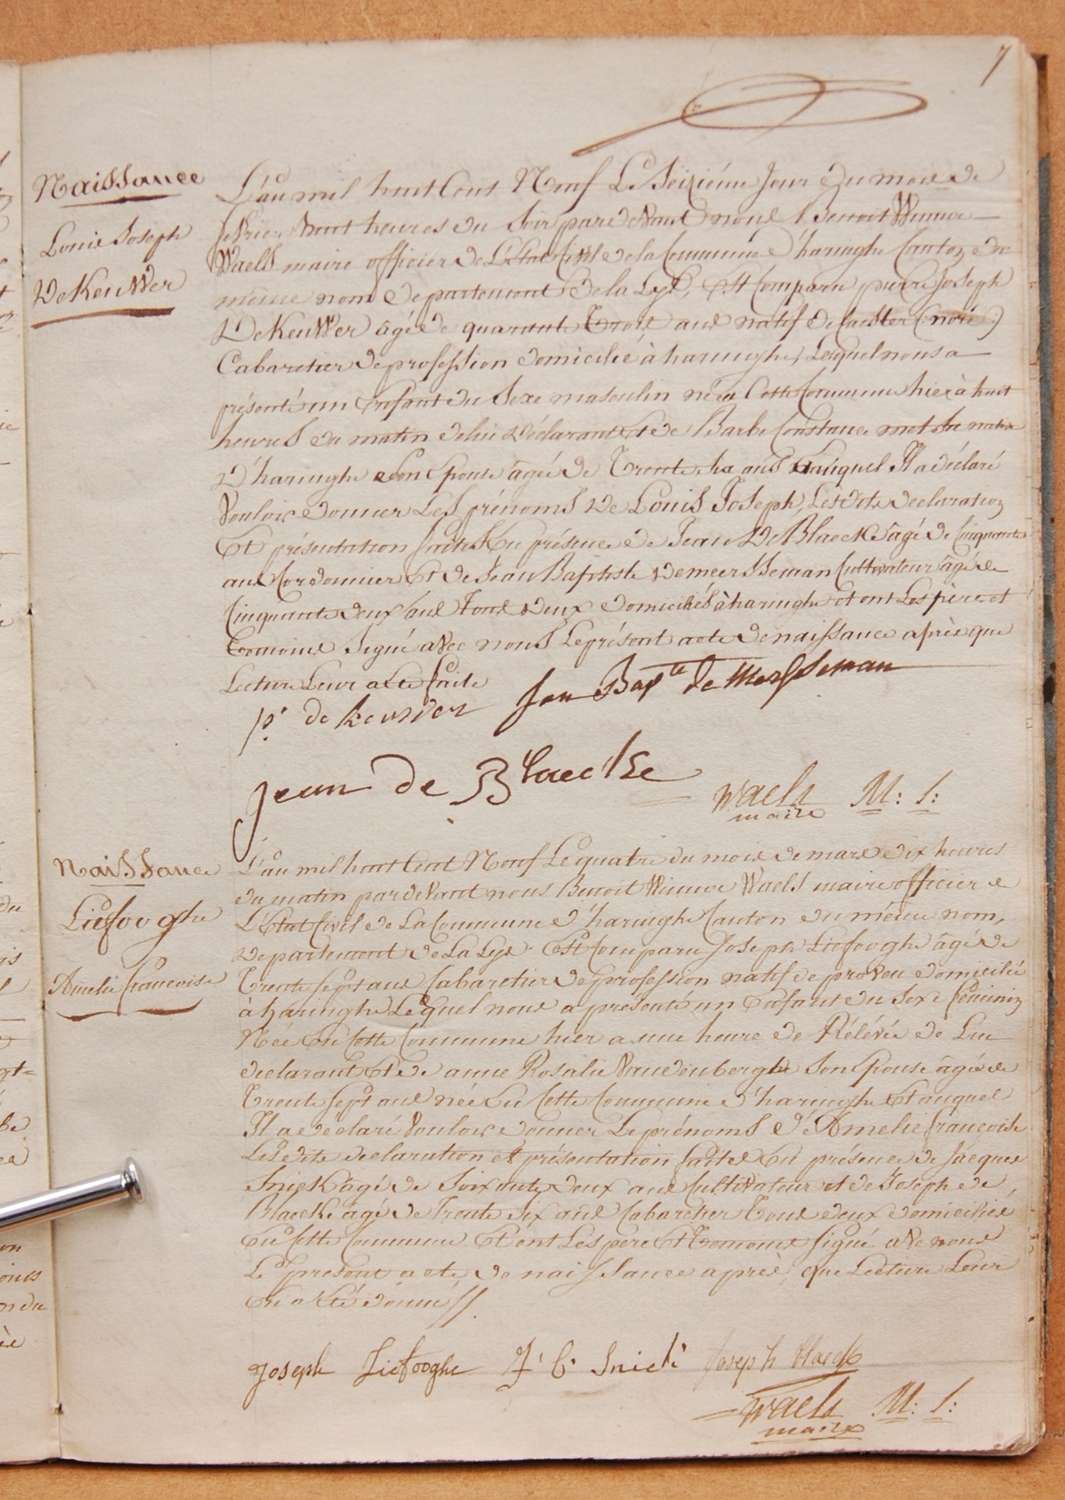 7
Naissance
Louis Joseph
DeKeuwer
L'an mil huit Cent Neuf Le Seizième Jour du mois de
fevrier huit heures du Soir pardevant nous Benoit Winnoc
Waels maire officier de L'Etat Civil de la Commune d'haringhe Canton de
même nom departement de la Lys, Est Comparu pierre Joseph
DeKeuwer âgé de quarante Trois ans natif de Caester (nord)
Cabaretier de profession domicilié à haringhe, Lequel nous a
présenté un Enfant du Sexe masculin né en Cette Commune hier à huit
heures du matin de lui Déclarant et de Barbe Constance native
D'haringhe Son Epouse âgée de Trente ans Et auquel Il a déclaré
Vouloir donner Les prénoms De Louis Joseph, Lesdites declaration
Et présentation faites En présence de Jean De Blaeck âgé de Cinquante
ans Cordonnier Et de Jean Baptiste Demeersseman Cultivateur âgé de
Cinquante deux ans Tous deux domiciliés à haringhe et ont Les père et
temoins Signé avec nous Le présent acte de naissance après que
Lecture Leur a été faite
p. de keuwer Jan Bapte de Mersseman
Jean de Blaecke
Waels M: S:
maire
Naissance
Liefooghe
Amelie francoise
L'an mil huit Cent Neuf Le quatre du mois de mars dix heures
du matin pardevant nous Benoit Winnoc Waels maire officier de
L'Etat Civil de La Commune d'haringhe Canton du même nom,
departement de La Lys Est Comparu Joseph Liefooghe âgé de
Trente Sept ans Cabaretier de profession natif de proven domicilié
à haringhe Lequel nous a présenté un Enfant du Sexe feminin
Née En Cette Commune hier a une heure de Rélévée de Lui
declarant Et de anne Rosalie Vandenberghe Son Epouse âgée de
Trente Sept ans née En Cette Commune d'haringhe Et auquel
Il a déclaré Vouloir donner Le prénoms d'Amelie francoise
Lesdite declaration et présentation faites En présence de Jacques
Snick âgé de Soixante deux ans Cultivateur et de Joseph de
Blaeck âgé de Trente Six ans Cabaretier Tous deux domiciliés
En Cette Commune Et ont Les pere Et Temoins signé avec nous
Le présent acte de naissance après que Lecture Leur
En a Eté donnée
Joseph Liefooghe J. C. Snick Joseph Blaeck
Waels M: S:
maire